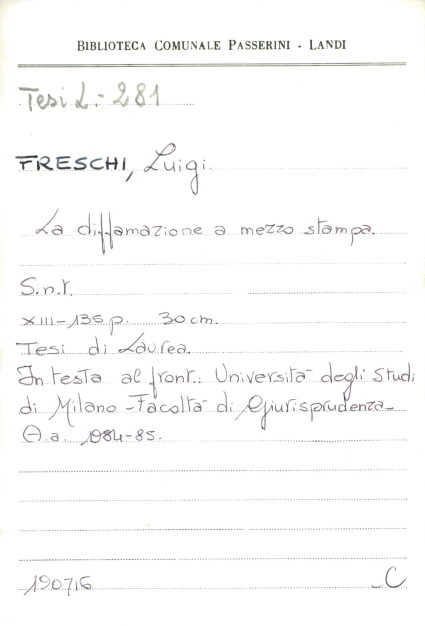 BIBLIOTECA COMUNALE PASSERINI - LANDI
Tesi L.- 281
FRESCHI, Luigi.
La diffamazione a mezzo stampa.
S.n.t.
XIII-135 p. 30 cm.
Tesi di Laurea.
In testa al front.: Università degli Studi
di Milano - Facoltà di Giurisprudenza -
A.a. 1984-85.
190716 C